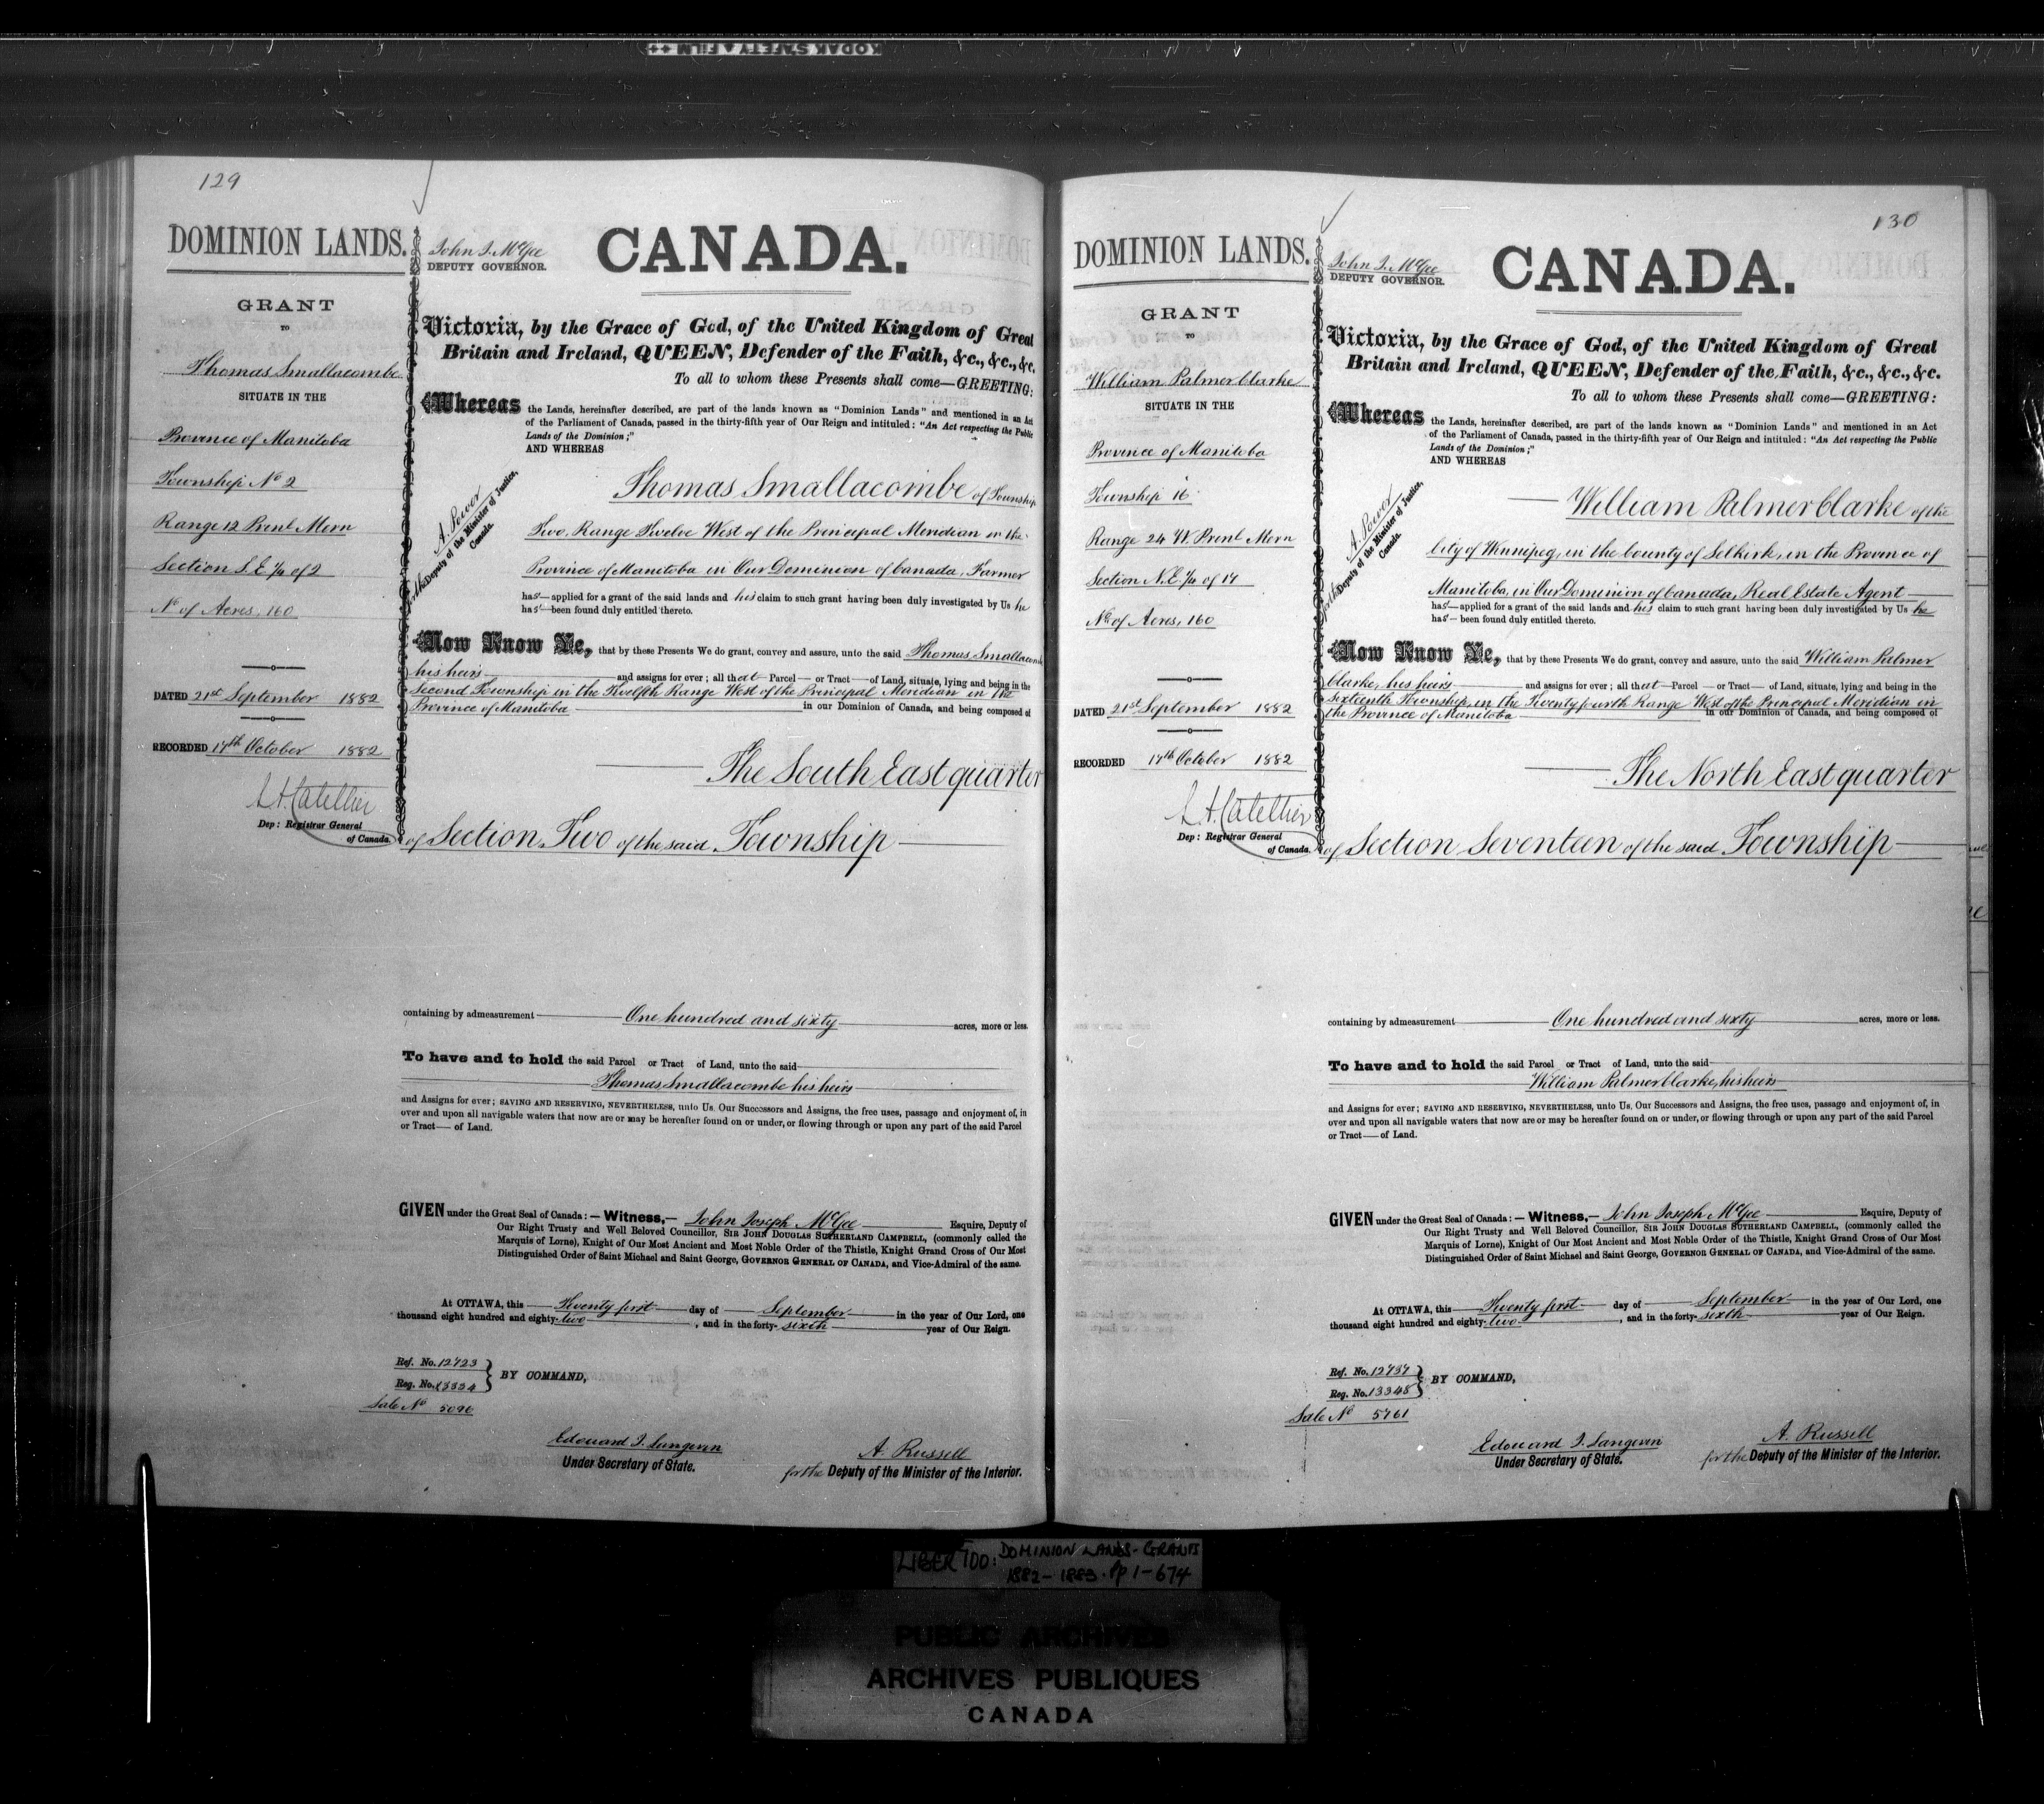 KODAK SAFETY FILM
129
DOMINION LANDS.
GRANT
TO
Thomas Smallacombe
SITUATE IN THE
Province of Manitoba
Township No 2
Range 12 Prenl Mern
Section S.E ¼ of 2
No of Acres, 160
DATED 21st September 1882
RECORDED 17th October 1882
L.A. Catellier
Dep: Registrar General
of Canada.
John J. McGee
DEPUTY GOVERNOR.
CANADA.
Victoria, by the Grace of God, of the United Kingdom of Great
Britain and Ireland, QUEEN, Defender of the Faith, &c., &c., &c.
To all to whom these Presents shall come—GREETING:
Whereas the Lands, hereinafter described, are part of the lands known as "Dominion Lands" and mentioned in an Act
of the Parliament of Canada, passed in the thirty-fifth year of Our Reign and intituled: "An Act respecting the Public
Lands of the Dominion;"
AND WHEREAS
A. Power
Deputy of the Minister of Justice,
Canada.
Thomas Smallacombe of Township
Two, Range Twelve West of the Principal Meridian in the
Province of Manitoba in Our Dominion of Canada, Farmer
has applied for a grant of the said lands and his claim to such grant having been duly investigated by Us he
has been found duly entitled thereto.
Now Know Ye, that by these Presents We do grant, convey and assure, unto the said Thomas Smallacombe
his heirs and assigns for ever; all that Parcel or Tract of Land, situate, lying and being in the
Second Township in the Twelfth Range West of the Principal Meridian in the
Province of Manitoba in our Dominion of Canada, and being composed of
The South East quarter
of Section Two of the said Township
containing by admeasurement One hundred and sixty acres, more or less.
To have and to hold the said Parcel or Tract of Land, unto the said
Thomas Smallacombe his heirs
and Assigns for ever; SAVING AND RESERVING, NEVERTHELESS, unto Us, Our Successors and Assigns, the free uses, passage and enjoyment of, in
over and upon all navigable waters that now are or may be hereafter found on or under, or flowing through or upon any part of the said Parcel
or Tract of Land.
GIVEN under the Great Seal of Canada:—Witness,—John Joseph McGee Esquire, Deputy of
Our Right Trusty and Well Beloved Councillor, SIR JOHN DOUGLAS SUTHERLAND CAMPBELL, (commonly called the
Marquis of Lorne), Knight of Our Most Ancient and Most Noble Order of the Thistle, Knight Grand Cross of Our Most
Distinguished Order of Saint Michael and Saint George, GOVERNOR GENERAL OF CANADA, and Vice-Admiral of the same.
At OTTAWA, this Twenty first day of September in the year of Our Lord, one
thousand eight hundred and eighty-two, and in the forty-sixth year of Our Reign.
Ref. No. 12723
Reg. No. 13334
BY COMMAND,
Sale No 5096
Edouard J. Langevin
Under Secretary of State.
A. Russell
for the Deputy of the Minister of the Interior.
130
DOMINION LANDS.
GRANT
TO
William Palmer Clarke
SITUATE IN THE
Province of Manitoba
Township 16
Range 24 W. Prenl Mern
Section N.E. ¼ of 17
No of Acres, 160
DATED 21st September 1882
RECORDED 17th October 1882
L.A. Catellier
Dep: Registrar General
of Canada.
John J. McGee
DEPUTY GOVERNOR.
CANADA.
Victoria, by the Grace of God, of the United Kingdom of Great
Britain and Ireland, QUEEN, Defender of the Faith, &c., &c., &c.
To all to whom these Presents shall come—GREETING:
Whereas the Lands, hereinafter described, are part of the lands known as "Dominion Lands" and mentioned in an Act
of the Parliament of Canada, passed in the thirty-fifth year of Our Reign and intituled: "An Act respecting the Public
Lands of the Dominion;"
AND WHEREAS
A. Power
for the Deputy of the Minister of Justice,
Canada.
William Palmer Clarke of the
City of Winnipeg, in the County of Selkirk, in the Province of
Manitoba, in Our Dominion of Canada, Real Estate Agent
has applied for a grant of the said lands and his claim to such grant having been duly investigated by Us he
has been found duly entitled thereto.
Now Know Ye, that by these Presents We do grant, convey and assure, unto the said William Palmer
Clarke, his heirs and assigns for ever; all that Parcel or Tract of Land, situate, lying and being in the
Sixteenth Township, in the Twenty fourth Range West of the Principal Meridian in
the Province of Manitoba in our Dominion of Canada, and being composed of
The North East quarter
of Section Seventeen of the said Township
containing by admeasurement One hundred and sixty acres, more or less.
To have and to hold the said Parcel or Tract of Land, unto the said
William Palmer Clarke, his heirs
and Assigns for ever; SAVING AND RESERVING, NEVERTHELESS, unto Us, Our Successors and Assigns, the free uses, passage and enjoyment of, in
over and upon all navigable waters that now are or may be hereafter found on or under, or flowing through or upon any part of the said Parcel
or Tract of Land.
GIVEN under the Great Seal of Canada:—Witness,—John Joseph McGee Esquire, Deputy of
Our Right Trusty and Well Beloved Councillor, SIR JOHN DOUGLAS SUTHERLAND CAMPBELL, (commonly called the
Marquis of Lorne), Knight of Our Most Ancient and Most Noble Order of the Thistle, Knight Grand Cross of Our Most
Distinguished Order of Saint Michael and Saint George, GOVERNOR GENERAL OF CANADA, and Vice-Admiral of the same.
At OTTAWA, this Twenty first day of September in the year of Our Lord, one
thousand eight hundred and eighty-two, and in the forty-sixth year of Our Reign.
Ref. No. 12737
Reg. No. 13348
BY COMMAND,
Sale No 5761
Edouard J. Langevin
Under Secretary of State.
A. Russell
for the Deputy of the Minister of the Interior.
LIBER 100: DOMINION LANDS-GRANTS
1882-1883. Pp 1-674
PUBLIC ARCHIVES
ARCHIVES PUBLIQUES
CANADA